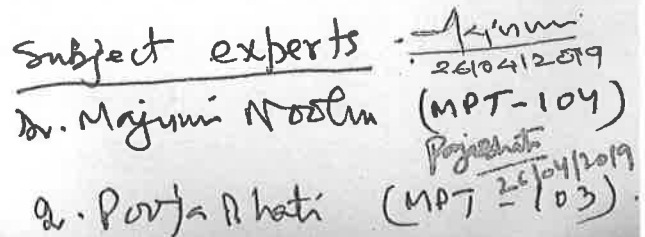 Subject experts :-
26/04/2019
Dr. Majumi (MPT-104)
26/04/2019
2. Pooja Bhati (MPT - 103).